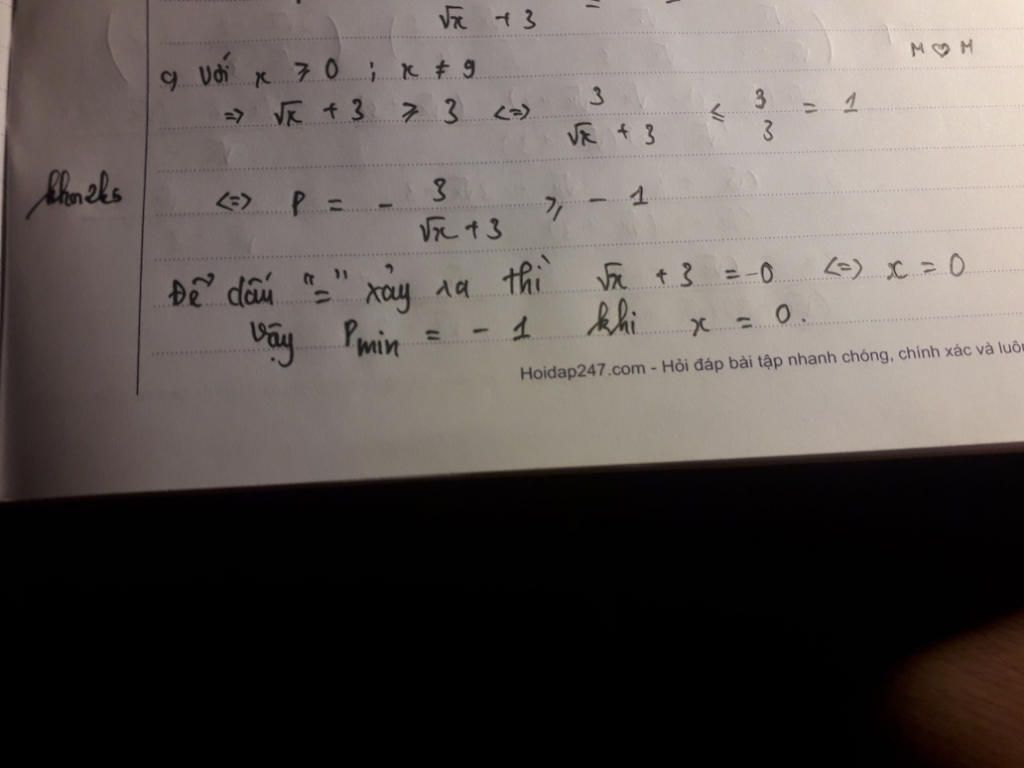 √x + 3 =
c, Với x ⩾ 0 ; x ≠ 9
M ♡ M
=> √x + 3 ⩾ 3 <=> 3/(√x + 3) ⩽ 3/3 = 1
<=> P = - 3/(√x + 3) ⩾ - 1
Để dấu "=" xảy ra thì √x + 3 = -0 <=> x = 0
Vậy Pmin = - 1 khi x = 0.
Hoidap247.com - Hỏi đáp bài tập nhanh chóng, chính xác và luôn